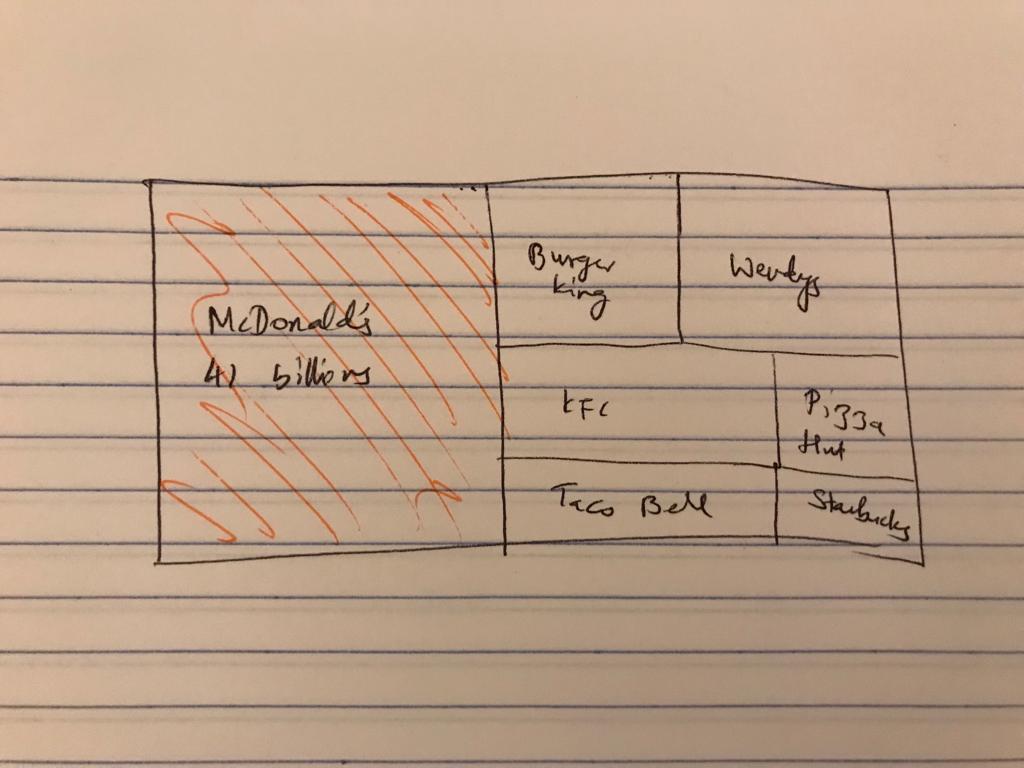 McDonald's
41 billions
Burger
King
Wendys
KFC
Pizza
Hut
Taco Bell
Starbucks